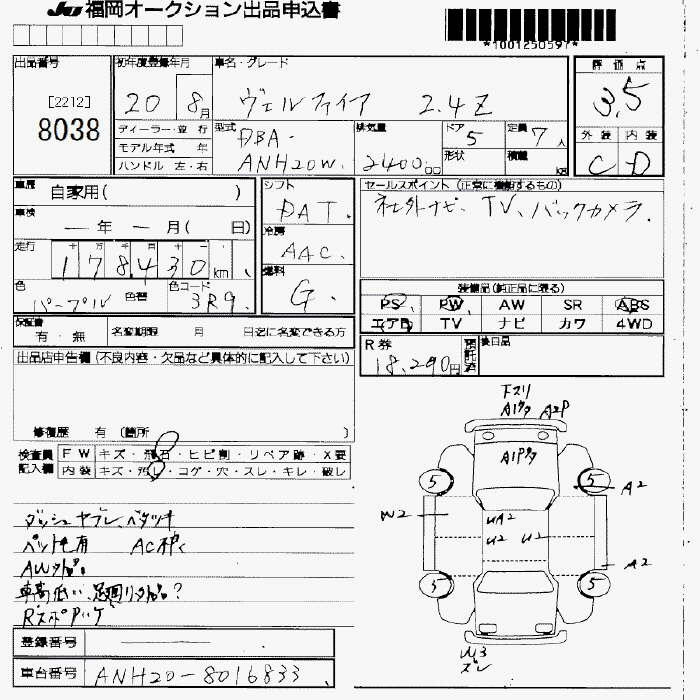 JU 福岡オークション出品申込書
*1001250591*
出品番号
[2212]
8038
初年度登録年月
20 8月
車名・グレード
ヴェルファイア 2.4Z
評価点
3.5
外装 内装
C D
ディーラー・並行
モデル年式 年
ハンドル 左・右
型式
DBA-
ANH20W.
排気量
2400cc
ドア
5
形状
定員
7人
積載
kg
車歴
自家用( )
車検
―年―月( 日)
走行
十 万 千 百 十
178,430km
色
パープル
色替
色コード
3R9.
シフト
DAT.
冷房
AAC.
燃料
G.
セールスポイント (正常に機能するもの)
社外ナビ、TV、バックカメラ.
装備品(純正品に限る)
PS PW AW SR ABS
エアB TV ナビ カワ 4WD
保証書
有・無
名変期限 月 日迄に名変できる方
R券
18,290円
預託済
後日品
出品店申告欄(不良内容・欠品など具体的に記入して下さい)
修復歴 有 (箇所 )
検査員
記入欄
FW キズ・飛石・ヒビ割・リペア跡・X要
内装 キズ・汚レ・コゲ・穴・スレ・キレ・破レ
ダッシュヤブレ、ベタツキ
ペット毛有
AW外品
R'スポ
下スリ
A1
A2P
A1
5
5
A2
W2
UA2
U2 U2
A2
5
5
W3
ズレ
登録番号
車台番号
ANH20-8016833